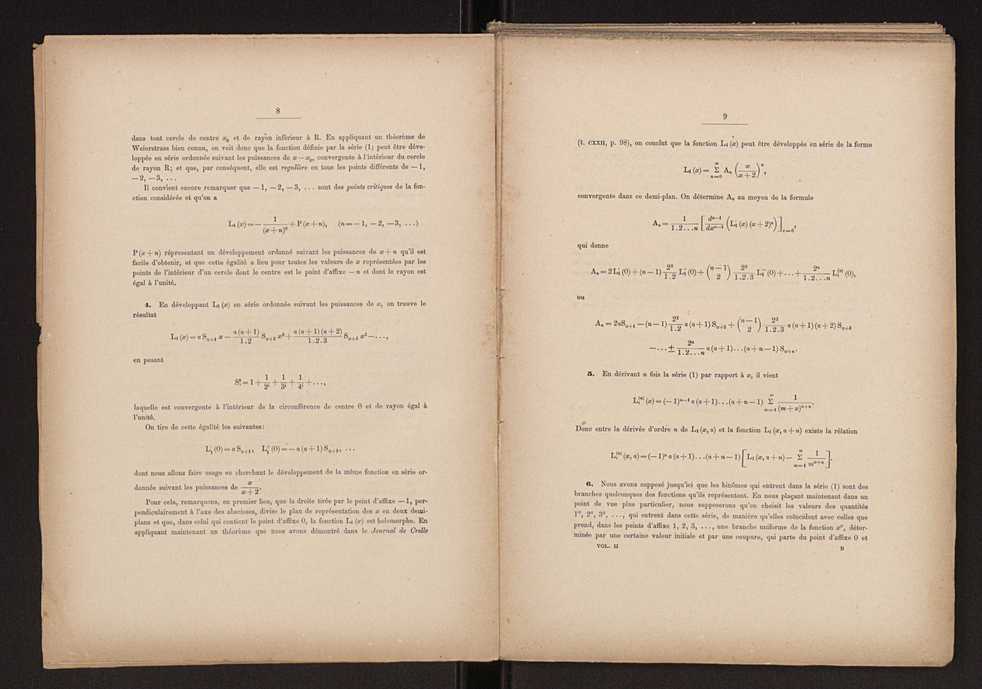 8
dans tout cercle de centre x₀ et de rayon inférieur à R. En appliquant un théorème de
Weierstrass bien connu, on voit donc que la fonction définie par la série (1) peut être déve-
loppée en série ordonnée suivant les puissances de x — x₀, convergente à l'intérieur du cercle
de rayon R; et que, par conséquent, elle est regulière en tous les points différents de — 1,
— 2, — 3, ...
Il convient encore remarquer que — 1, — 2, — 3, ... sont des points critiques de la fon-
ction considérée et qu'on a
L₁ (x) = — 1/(x+n)ᵃ + P (x+n), (n = — 1, — 2, — 3, ...)
P (x + n) répresentant un développement ordonné suivant les puissances de x + n qu'il est
facile d'obtenir, et que cette égalité a lieu pour toutes les valeurs de x représentées par les
points de l'intérieur d'un cercle dont le centre est le point d'affixe — n et dont le rayon est
égal à l'unité.
4. En développant L₁ (x) en série ordonnée suivant les puissances de x, on trouve le
résultat
L₁ (x) = a Sₐ₊₁ x — a(a+1)/1.2 Sₐ₊₂ x² + a(a+1)(a+2)/1.2.3 Sₐ₊₃ x³ — ...,
en posant
Sᵢ = 1 + 1/2ⁱ + 1/3ⁱ + 1/4ⁱ + ...,
laquelle est convergente à l'intérieur de la circonférence de centre 0 et de rayon égal à
l'unité.
On tire de cette égalité les suivantes:
L₁′ (0) = a Sₐ₊₁, L₁″ (0) = — a (a+1) Sₐ₊₂, ...
dont nous allons faire usage en cherchant le développement de la même fonction en série or-
donnée suivant les puissances de x/(x+2).
Pour cela, remarquons, en premier lieu, que la droite tirée par le point d'affixe — 1, per-
pendiculairement à l'axe des abscisses, divise le plan de représentation des x en deux demi-
plans et que, dans celui qui contient le point d'affixe 0, la fonction L₁ (x) est holomorphe. En
appliquant maintenant un théorème que nous avons démontré dans le Journal de Crelle
9
(t. CXXII, p. 98), on conclut que la fonction L₁ (x) peut être développée en série de la forme
L₁ (x) = Σ_{n=0}^{∞} Aₙ (x/(x+2))ⁿ,
convergente dans ce demi-plan. On détermine Aₙ au moyen de la formule
Aₙ = 1/(1.2...n) [dⁿ⁻¹/dxⁿ⁻¹ (L₁′ (x) (x+2)ⁿ)]_{x=0},
qui donne
Aₙ = 2L₁′ (0) + (n—1) 2²/1.2 L₁″ (0) + (n—1 / 2) 2³/1.2.3 L₁‴ (0) + ... + 2ⁿ/1.2...n L₁⁽ⁿ⁾ (0),
ou
Aₙ = 2aSₐ₊₁ — (n—1) 2²/1.2 a (a+1) Sₐ₊₂ + (n—1 / 2) 2³/1.2.3 a (a+1) (a+2) Sₐ₊₃
— ... ± 2ⁿ/1.2...n a (a+1) ... (a+n—1) Sₐ₊ₙ.
5. En dérivant n fois la série (1) par rapport à x, il vient
L₁⁽ⁿ⁾ (x) = (— 1)ⁿ⁻¹ a (a+1) ... (a+n—1) Σ_{m=1}^{∞} 1/(m+x)ᵃ⁺ⁿ.
Donc entre la dérivée d'ordre n de L₁ (x, a) et la fonction L₁ (x, a+n) existe la rélation
L₁⁽ⁿ⁾ (x, a) = (— 1)ⁿ a (a+1) ... (a+n—1) [L₁ (x, a+n) — Σ_{m=1}^{∞} 1/mᵃ⁺ⁿ].
6. Nous avons supposé jusqu'ici que les binômes qui entrent dans la série (1) sont des
branches quelconques des fonctions qu'ils représentent. En nous plaçant maintenant dans un
point de vue plus particulier, nous supposerons qu'on choisit les valeurs des quantités
1ᵃ, 2ᵃ, 3ᵃ, ..., qui entrent dans cette série, de manière qu'elles coïncident avec celles que
prend, dans les points d'affixe 1, 2, 3, ..., une branche uniforme de la fonction xᵃ, déter-
minée par une certaine valeur initiale et par une coupure, qui parte du point d'affixe 0 et
VOL. II B